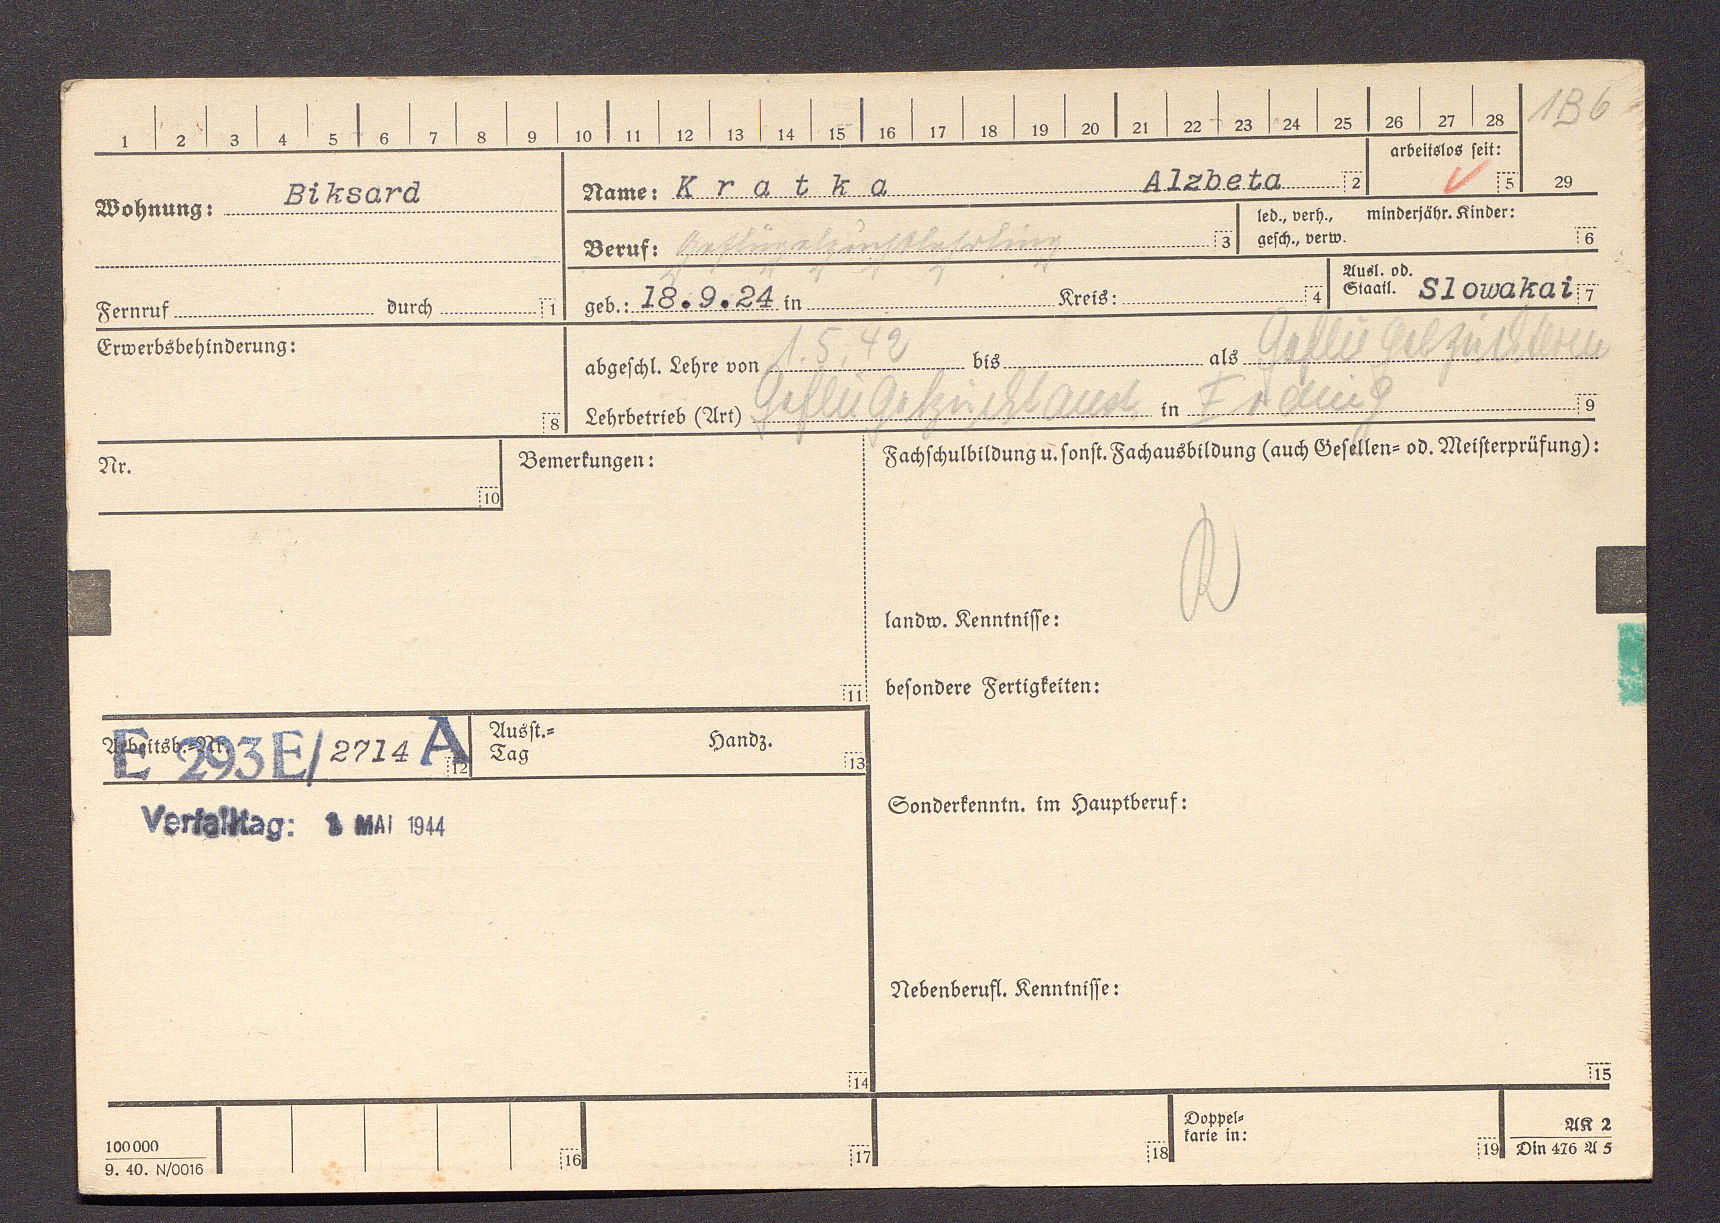 1 2 3 4 5 6 7 8 9 10 11 12 13 14 15 16 17 18 19 20 21 22 23 24 25 26 27 28
1B6
29
Wohnung: Biksard
Name: K r a t k a Alzbeta 2
arbeitslos seit: ✓ 5
Beruf: Geflügelzuchtlehrling 3
led., verh., minderjähr. Kinder:
gesch., verw. 6
Fernruf durch 1
geb.: 18.9.24 in Kreis: 4
Ausl. od.
Staatl. Slowakai 7
Erwerbsbehinderung: 8
abgeschl. Lehre von 1.5.42 bis als Geflügelzüchterin
Lehrbetrieb (Art) in 9
Nr. 10
Bemerkungen: 11
Fachschulbildung u. sonst. Fachausbildung (auch Gesellen- od. Meisterprüfung):
landw. Kenntnisse:
besondere Fertigkeiten:
Arbeitsb.-Nr. E 293E/2714 A 12
Ausst.-
Tag Handz. 13
Verfalltag: 1 MAI 1944
14
Sonderkenntn. im Hauptberuf:
Nebenberufl. Kenntnisse:
15
100 000
9. 40. N/0016
16 17 18
Doppel-
karte in: 19
AK 2
Din 476 A 5